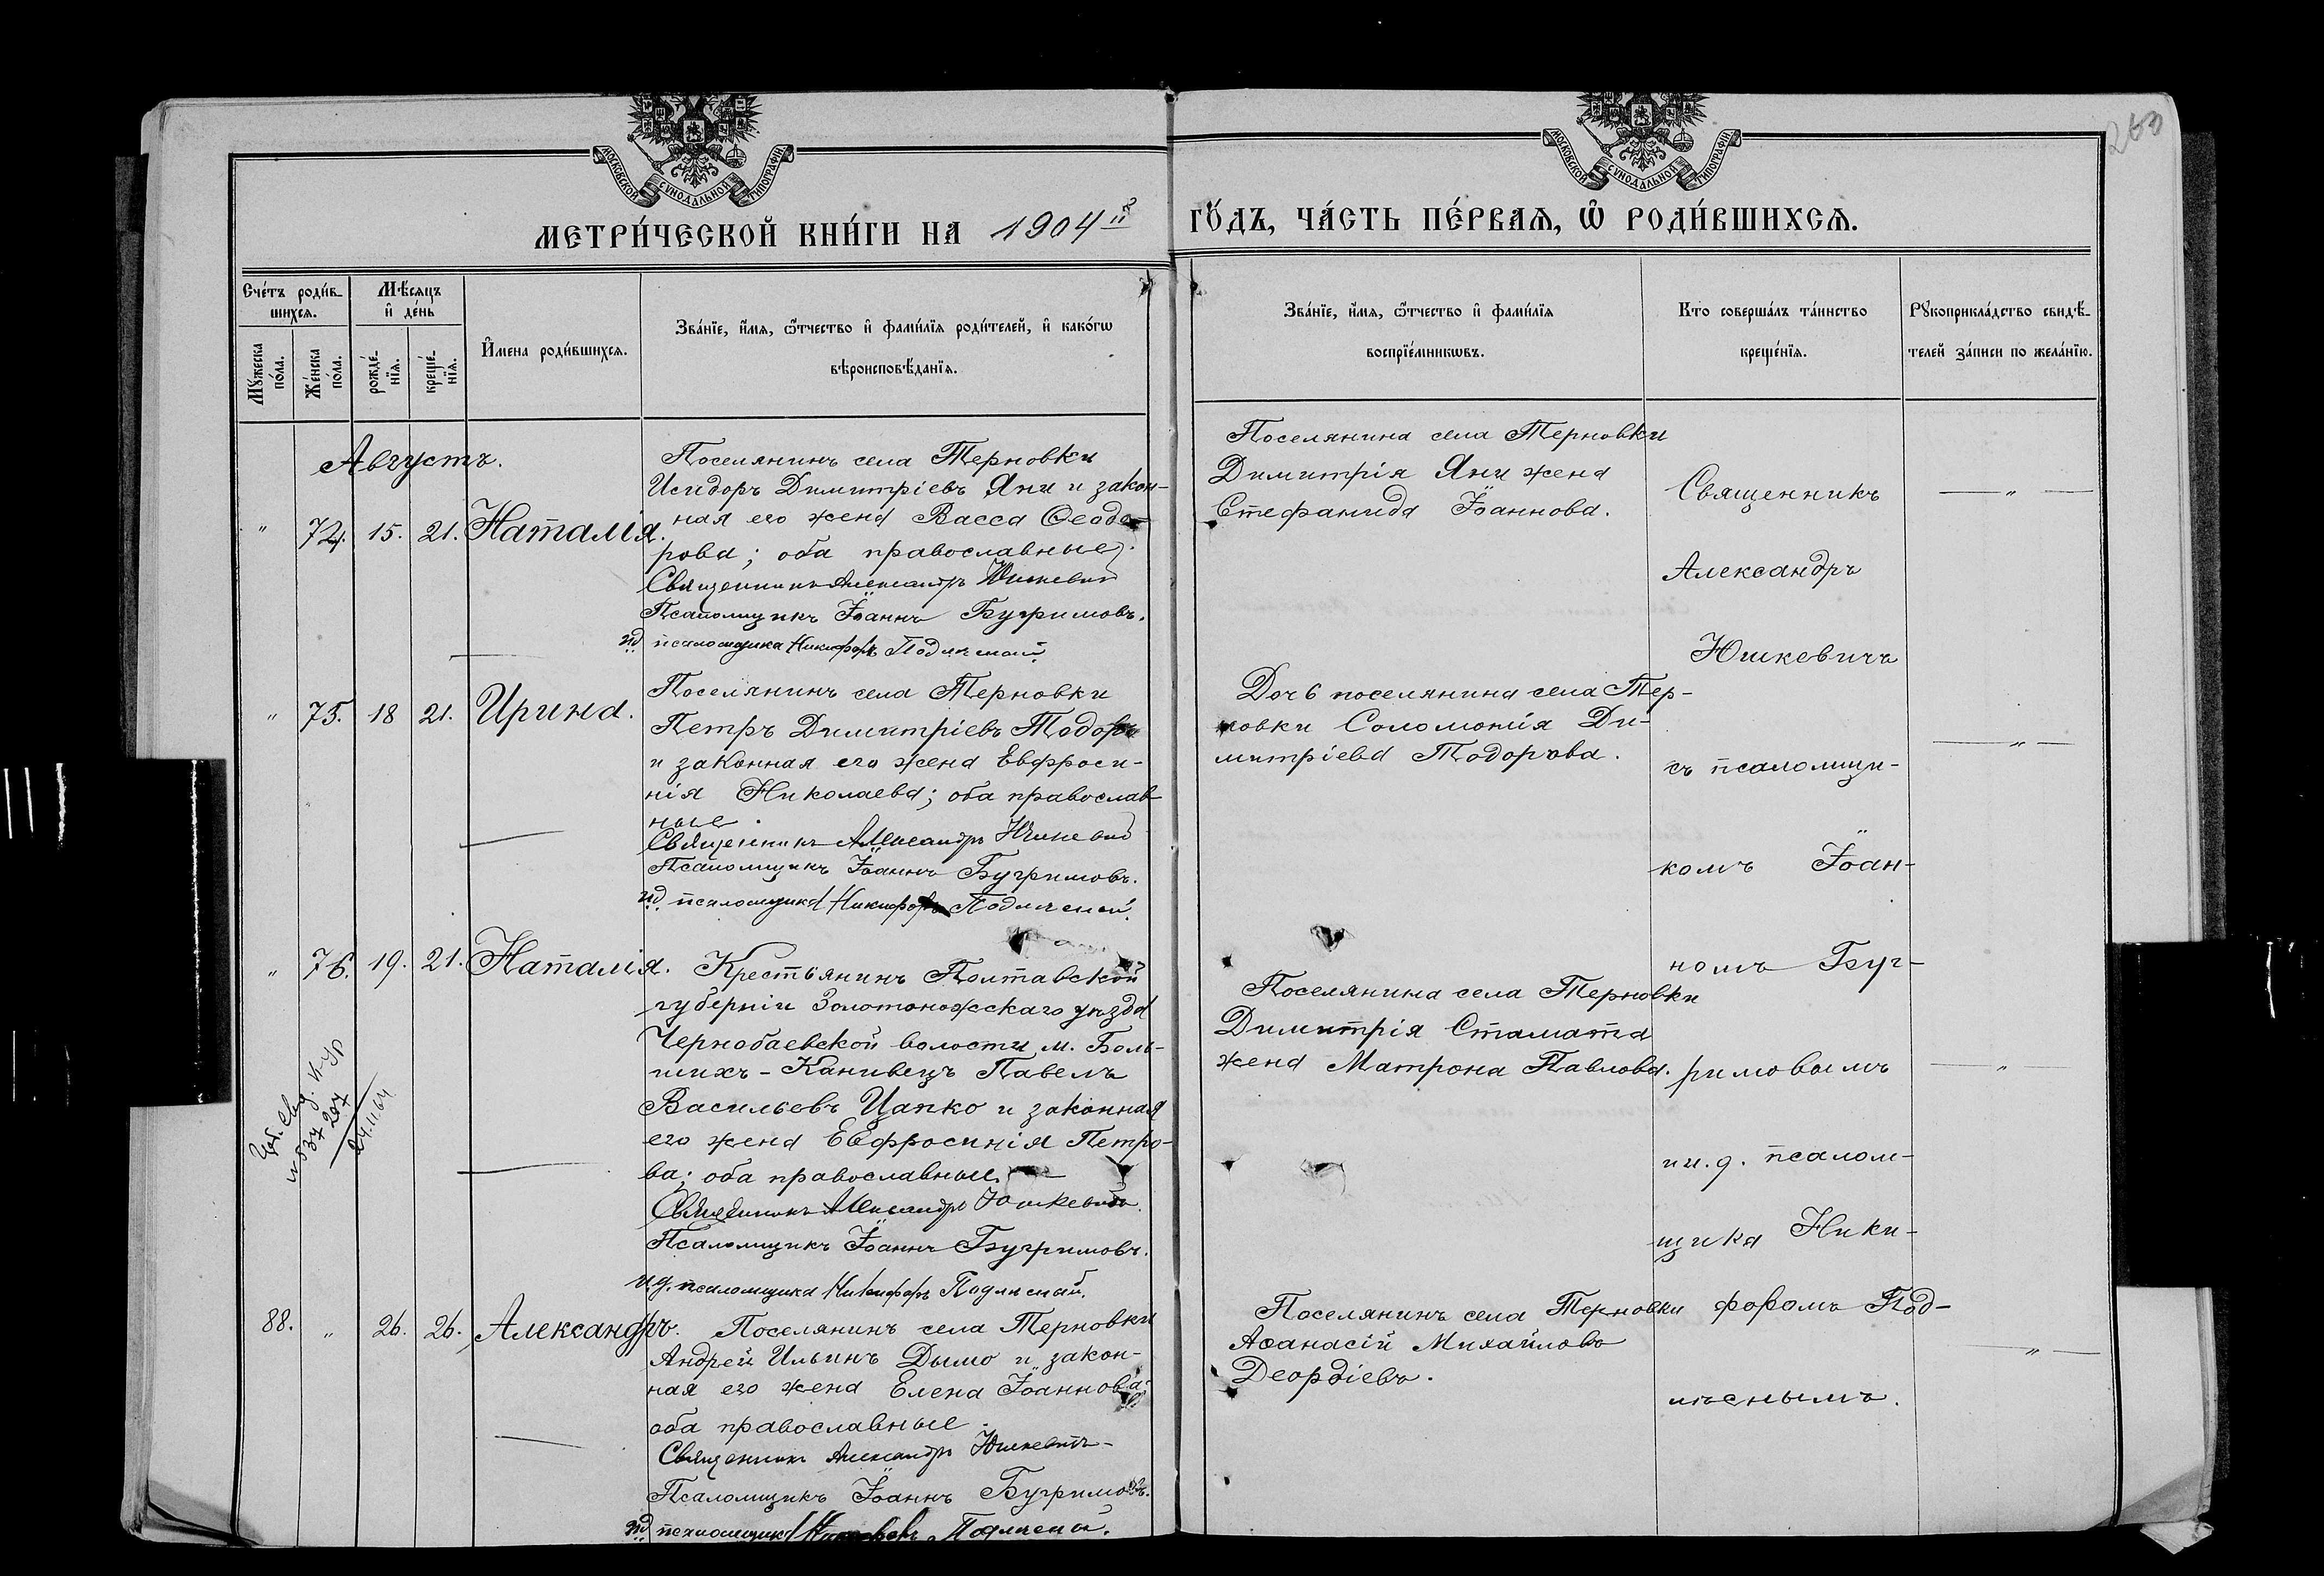 260
МОСКОВСКОЙ СѴНОДАЛЬНОЙ ТИПОГРАФІИ
МОСКОВСКОЙ СѴНОДАЛЬНОЙ ТИПОГРАФІИ
МЕТРИ́ЧЕСКОЙ КНИ́ГИ НА 1904й
ГО́ДЪ, ЧА́СТЬ ПЕ́РВАѦ, Ѡ҆ РОДИ́ВШИХСѦ.
Сче́тъ роди́в-
шихсѧ.
Мꙋ́жеска по́ла.
Же́нска по́ла.
Мѣ́сяцъ
и҆ де́нь
рожде́-
нїѧ.
креще́-
нїѧ.
И҆мена роди́вшихсѧ.
Зва́нїе, и҆́мѧ, ѻ҆́тчество и҆ фами́лїѧ роди́телей, и҆ како́гѡ
вѣроисповѣ́данїѧ.
Зва́нїе, и҆́мѧ, ѻ҆́тчество и҆ фами́лїѧ
воспрїе́мникѡвъ.
Кто соверша́лъ та́инство
креще́нїѧ.
Рꙋкоприкла́дство свидѣ́-
телей за́писи по жела́нїю.
Августъ.
" 74. 15. 21. Наталія.
Поселянинъ села Терновки
Исидоръ Димитріевъ Яни и закон-
ная его жена Васса Ѳеодо-
рова; оба православные.
Священникъ Александръ Юшкевич
Псаломщикъ Іоаннъ Бугримовъ.
и.д. псаломщика Никифоръ Подлѣсный.
Поселянина села Терновки
Димитрія Яни жена
Стефанида Іоаннова.
" 75. 18 21. Ирина.
Поселянинъ села Терновки
Петръ Димитріевъ Тодоровъ
и законная его жена Евфроси-
нія Николаева; оба православ-
ные.
Священникъ Александръ Юшкевич
Псаломщикъ Іоаннъ Бугримовъ.
и.д. псаломщика Никифоръ Подлѣсный.
Дочь поселянина села Тер-
новки Соломонія Ди-
митріева Тодорова.
" 76. 19. 21. Наталія.
Крестьянинъ Полтавской
губерніи Золотоножскаго уѣзда
Чернобаевской волости м. Боль-
шихъ-Канивецъ Павелъ
Васильевъ Цапко и законная
его жена Евфросинія Петро-
ва; оба православные.
Священникъ Александръ Юшкевичъ.
Псаломщикъ Іоаннъ Бугримовъ.
и.д. псаломщика Никифоръ Подлѣсный.
Поселянина села Терновки
Димитрія Стамата
жена Матрона Павлова.
24.11.64
88. " 26. 26. Александръ.
Поселянинъ села Терновки
Андрей Ильинъ Дымо и закон-
ная его жена Елена Іоаннова;
оба православные.
Священникъ Александръ Юшкевичъ
Псаломщикъ Іоаннъ Бугримовъ.
и.д. псаломщика Подлѣсный.
Поселянинъ села Терновки
Аѳанасій Михайловъ
Деордіевъ.
Священникъ
Александръ
Юшкевичъ
съ псаломщи-
комъ Іоан-
номъ Буг-
римовымъ
и и.д. псалом-
щика Ники-
форомъ Под-
лѣснымъ.